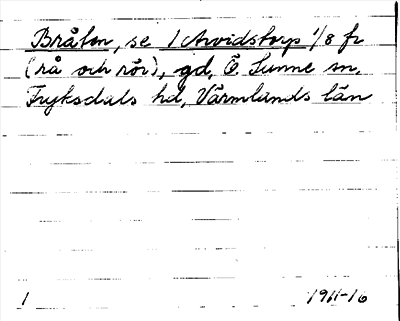 Bråten, se 1 Arvidstorp 1/8 fr
(rå och rör), gd, Ö. Sunne sn,
Fryksdals hd, Värmlands län
1 1911-16